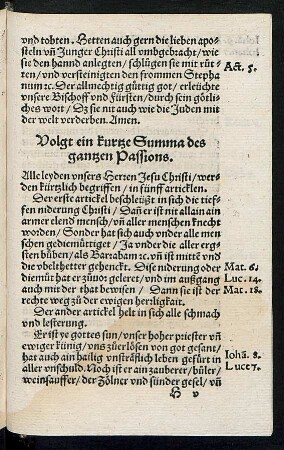 vnd tobten. Hetten auch gern die lieben apo-
steln vñ Junger Christi all vmbgebracht/ wie
sie den hannd anlegten/ schlůgen sie mit růt-
ten/ vnd versteinigten den frommen Stepha
num ꝛc. Der allmechtig güttig got/ erleüchte
vnsere Bischoff vnd Fürsten/ durch sein götli-
ches wort/ Dz sie nit auch wie die Juden mit
der welt verderben. Amen.
Act. 5.
Volgt ein kurtze Summa des
gantzen Passions.
Alle leyden vnsers Herren Jesu Christi/ wer-
den kürtzlich begriffen/ in fünff articklen.
Der erste artickel beschleüßt in sich die tief-
fen niderung Christi/ Dañ er ist nit allain ain
armer elend mensch/ vñ aller menschen knecht
worden/ Sonder hat sich auch vnder alle men-
schen gediemüttiget/ Ja vnder die aller erg-
sten bůben/ als Barrabam ꝛc. vñ ist mittē vnd
die vbelthetter gehenckt. Dise niderung oder
diemůt hat er zůuor geleret/ vnd im außgang
auch mit der that bewisen/ Dann sie ist der
recht weg zů der ewigen herligkait.
Mat. 6.
Luc. 14.
Mat. 18.
Der ander artickel helt in sich alle schmach
vnd lesterung.
Er ist ye gottes sun/ vnser hoher priester vñ
ewiger künig/ vns zůerlösen von got gesant/
hat auch ain hailig vnsträflich leben gefürt in
aller vnschuld. Noch ist er ain zauberer/ bůler/
weinsauffer/ der Zölner vnd sünder gesel/ vñ
Johā. 8.
Luce 7.
H v